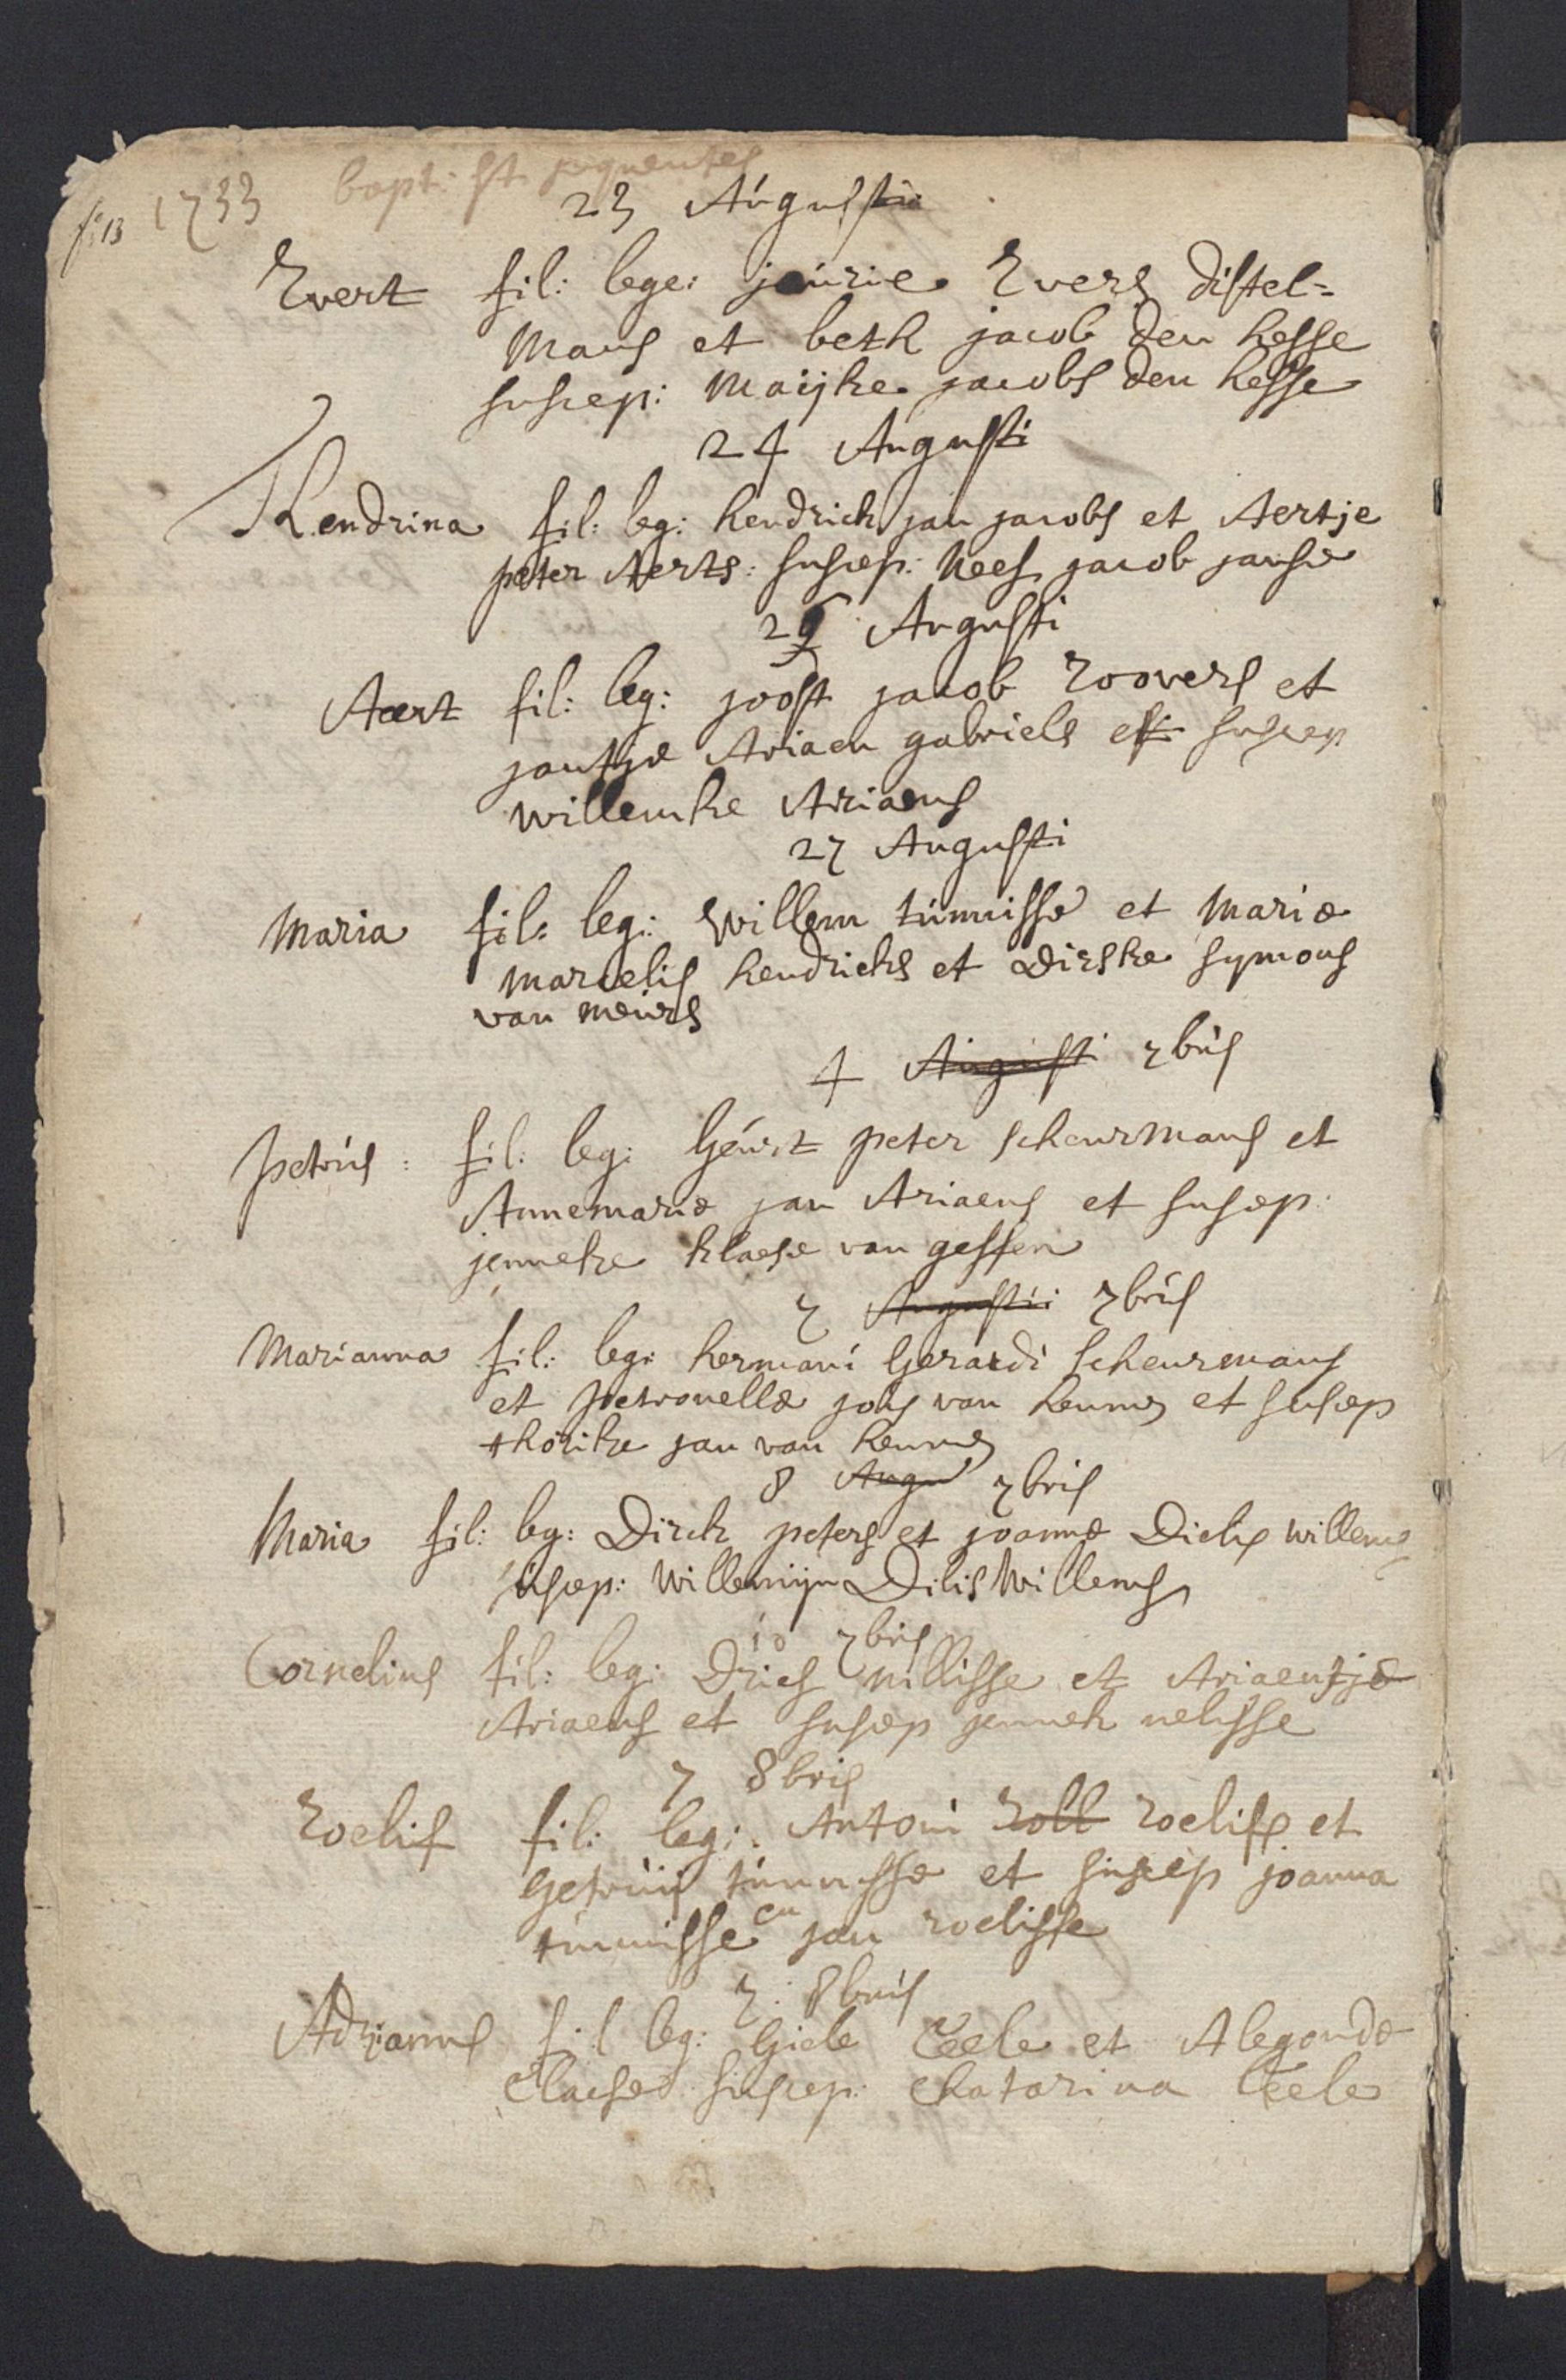 f: 13 1733 bapt: st sequentes
23 Augusti
Evert fil: lege: jaurie Evers distel=
mans et beth jacob den hesse
suscep: Maijke jacobs den hesse
24 Augusti
Hendrina fil: leg: hendrick jan jacobs et Aertje
peter Aerts: suscep: Nees jacob janse
26 Augusti
Aert fil: leg: joost jacob roovers et
jantje Ariaen gabriels et suscep
willemke Ariaens
27 Augusti
Maria fil: leg: Willem tunnisse et Marie
Marcelis hendricks et Dirske symons
van meurs
4 Augusti 7bris
petrus: fil: leg: Geurt peter scheurmans et
Annemarie jan Ariaens et suscep:
jenneke klaese van gessen
7 Augusti 7bris
Marianna fil: leg: hermani Gerardi scheurmans
et petronella jois van heumen et suscep
jan van heumen
8 Augu 7bris
Maria fil: leg: Dirck peters et joanne Dielis willems
suscep: Willemijn Dilis Willems
10 7bris
Cornelius fil: leg: Dries nillisse et Ariaentje
Ariaens et suscep jennek nelisse
7 8bris
Roelif fil: leg: Antoni roll roelifse et
Getruij tunnisse et suscep joanna
tunnisse en jan roelisse
7: 8bris
Adrianus fil leg: Giele Ceele et Alegonde
Claese suscep: Chatarina Ceele